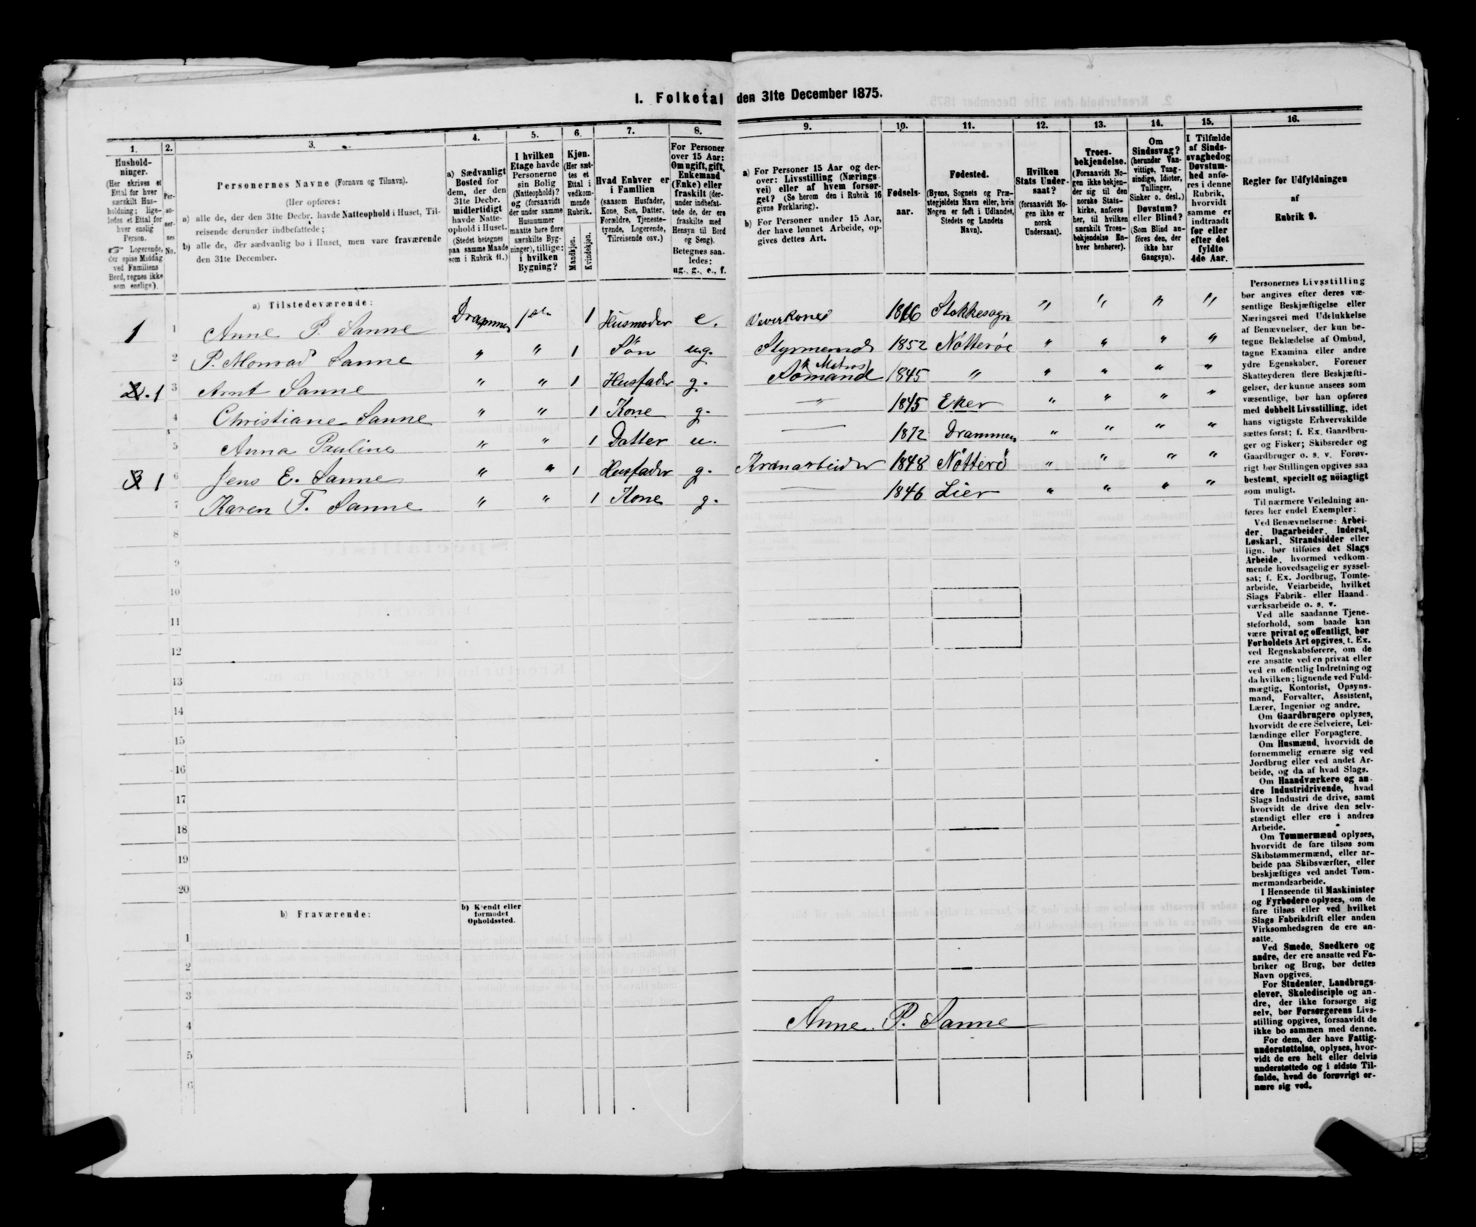 I. Folketal den 31te December 1875.
1. 2. 3. 4. 5. 6. 7. 8. 9. 10. 11. 12. 13. 14. 15. 16.
Hushold-
ninger.
(Her skrives et
Ettal for hver
særskilt Hus-
holdning; lige-
ledes et Ettal for
hver enslig
Person.
☞ Logerende,
der spise Middag
ved Familiens
Bord, regnes ikke
som enslige).
Per-
so-
ner-
nes
No.
Personernes Navne (Fornavn og Tilnavn).
(Her opføres:
a) alle de, der den 31te Decbr. havde Natteophold i Huset, Til-
reisende derunder indbefattede;
b) alle de, der sædvanlig bo i Huset, men vare fraværende
den 31te December.
a) Sædvanligt
Bosted for
dem, der den
31te Decbr.
midlertidigt
havde Natte-
ophold i Huset.
(Stedet betegnes
paa samme Maade
som i Rubrik 11.)
I hvilken
Etage havde
Personerne
sin Bolig
(Natteophold)?
og (forsaavidt
der under samme
Husnummer
maatte høre flere
særskilte Byg-
ninger), tillige:
i hvilken
Bygning?
Kjøn.
(Her sæt-
tes et
Ettal i
vedkom-
mende
Rubrik.
Mandkjøn.
Kvindekjøn.
Hvad Enhver er
i Familien
(saasom Husfader,
Kone, Søn, Datter,
Forældre, Tjeneste-
tyende, Logerende,
Tilreisende osv.)
For Personer
over 15 Aar:
Om ugift, gift,
Enkemand
(Enke) eller
fraskilt (der-
under indbefat-
tede de, der ere
fraskilte med
Hensyn til Bord
og Seng).
Betegnes saa-
ledes:
ug., g., e., f.
a) For Personer 15 Aar og der-
over: Livsstilling (Nærings-
vei) eller af hvem forsør-
get? (Se herom den i Rubrik 16
givne Forklaring).
b) For Personer under 15 Aar,
der have lønnet Arbeide, op-
gives dettes Art.
Fødsels-
aar.
Fødested.
(Byens, Sognets og Præ-
stegjeldets Navn eller, hvis
Nogen er født i Udlandet,
Stedets og Landets
Navn).
Hvilken
Stats Under-
saat?
(forsaavidt No-
gen ikke er
norsk
Undersaat).
Troes-
bekjendelse.
(Forsaavidt No-
gen ikke bekjen-
der sig til den
norske Stats-
kirke, anføres
her, til hvilken
særskilt Troes-
bekjendelse En-
hver henhører).
Om
Sindssvag?
(herunder Van-
vittige, Tung-
sindige, Idioter,
Tullinger,
Sinker o. desl.)
Døvstum?
eller Blind?
(Som Blind an-
føres den, der
ikke har
Gangsyn).
I Tilfælde
af Sinds-
svaghed og
Døvstum-
hed anfø-
res i denne
Rubrik,
hvorvidt
samme er
indtraadt
før eller
efter det
fyldte
4de Aar.
Regler for Udfyldningen
af
Rubrik 9.
a) Tilstedeværende:
1 1 Anne P. Sanne Drammen 1ste 1 Husmoder e. Væverkone 1816 Stokkesogn " " " "
2 P. Monrad Sanne " " 1 Søn ug. Styrmand 1852 Nötteröe " " " "
2. 1 3 Arnt Sanne " " 1 Husfader g. Sömand Matros 1845 " " " " "
4 Christiane Sanne " " 1 Kone g. " 1845 Eker " " " "
5 Anna Pauline " " 1 Datter u. 1872 Drammen " " " "
3 1 6 Jens E. Sanne " " 1 Husfader g. Kranarbeider 1848 Nötterö " " " "
7 Karen T. Sanne " " 1 Kone g. 1846 Lier " " " "
8
9
10
11
12
13
14
15
16
17
18
19
20
b) Fraværende:
b) Kjendt eller
formodet
Opholdssted.
1
2
3
4
5
6
Anne P. Sanne
Personernes Livsstilling
bør angives efter deres væ-
sentlige Beskjæftigelse eller
Næringsvei med Udelukkelse
af Benævnelser, der kun be-
tegne Beklædelse af Ombud,
tagne Examina eller andre
ydre Egenskaber. Forener
Skatteyderen flere Beskjæfti-
gelser, der kunne ansees som
væsentlige, bør han opføres
med dobbelt Livsstilling, idet
hans vigtigste Erhvervskilde
sættes først; f. Ex. Gaardbru-
ger og Fisker; Skibsreder og
Gaardbruger o. s. v. Forøv-
rigt bør Stillingen opgives saa
bestemt, specielt og nøiagtigt
som muligt.
Til nærmere Veiledning an-
føres her endel Exempler:
Ved Benævnelserne: Arbei-
der, Dagarbeider, Inderst,
Løskarl, Strandsidder eller
lign. bør tilføies det Slags
Arbeide, hvormed vedkom-
mende hovedsagelig er syssel-
sat; f. Ex. Jordbrug, Tomte-
arbeide, Veiarbeide, hvilket
Slags Fabrik- eller Haand-
værksarbeide o. s. v.
Ved alle saadanne Tjene-
steforhold, som baade kan
være privat og offentligt, bør
Forholdets Art opgives, t. Ex.
ved Regnskabsførere, om de
ere ansatte ved en privat eller
ved en offentlig Indretning og
da hvilken; lignende ved Fuld-
mægtig, Kontorist, Opsyns-
mand, Forvalter, Assistent,
Lærer, Ingeniør og andre.
Om Gaardbrugere oplyses,
hvorvidt de ere Selveiere, Lei-
lændinge eller Forpagtere.
Om Husmænd, hvorvidt de
fornemmelig ernære sig ved
Jordbrug eller ved andet Ar-
beide, og da af hvad Slags.
Om Haandværkere og an-
dre Industridrivende, hvad
Slags Industri de drive, samt
hvorvidt de drive den selv-
stændigt eller ere i andres
Arbeide.
Om Tømmermænd oplyses,
hvorvidt de fare tilsøs som
Skibstømmermænd, eller ar-
beide paa Skibsværfter, eller
beskjæftiges ved andet Tøm-
mermandsarbeide.
I Henseende til Maskinister
og Fyrbødere oplyses, om de
fare tilsøs eller ved hvilket
Slags Fabrikdrift eller anden
Virksomhedsgren de ere an-
satte.
Ved Smede, Snedkere og
andre, der ere ansatte ved Fa-
briker og Brug, bør dettes
Navn opgives.
For Studenter, Landbrugs-
elever, Skoledisciple og an-
dre, der ikke forsørge sig
selv, bør Forsørgerens Livs-
stilling opgives, forsaavidt de
ikke bo sammen med denne.
For dem, der have Fattig-
understøttelse, oplyses, hvor-
vidt de ere helt eller delvis
understøttede og i sidste Til-
fælde, hvad de forøvrigt er-
nære sig ved.